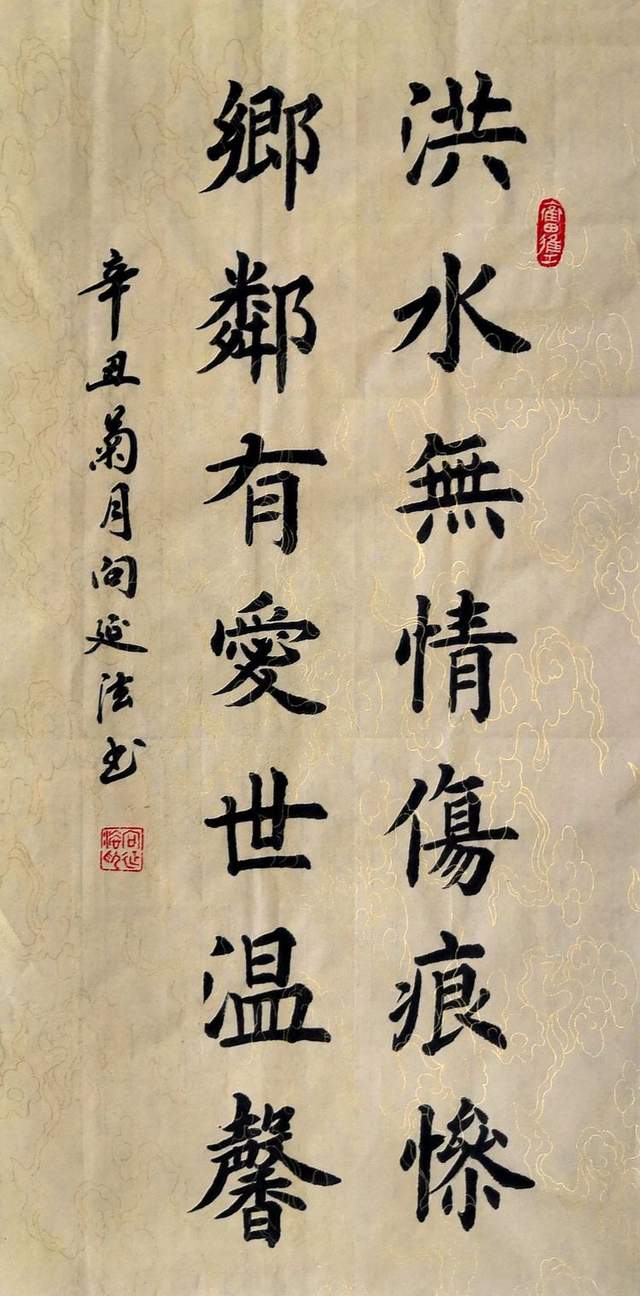 洪水無情傷痕慘
鄉鄰有愛世温馨
辛丑菊月向延法书